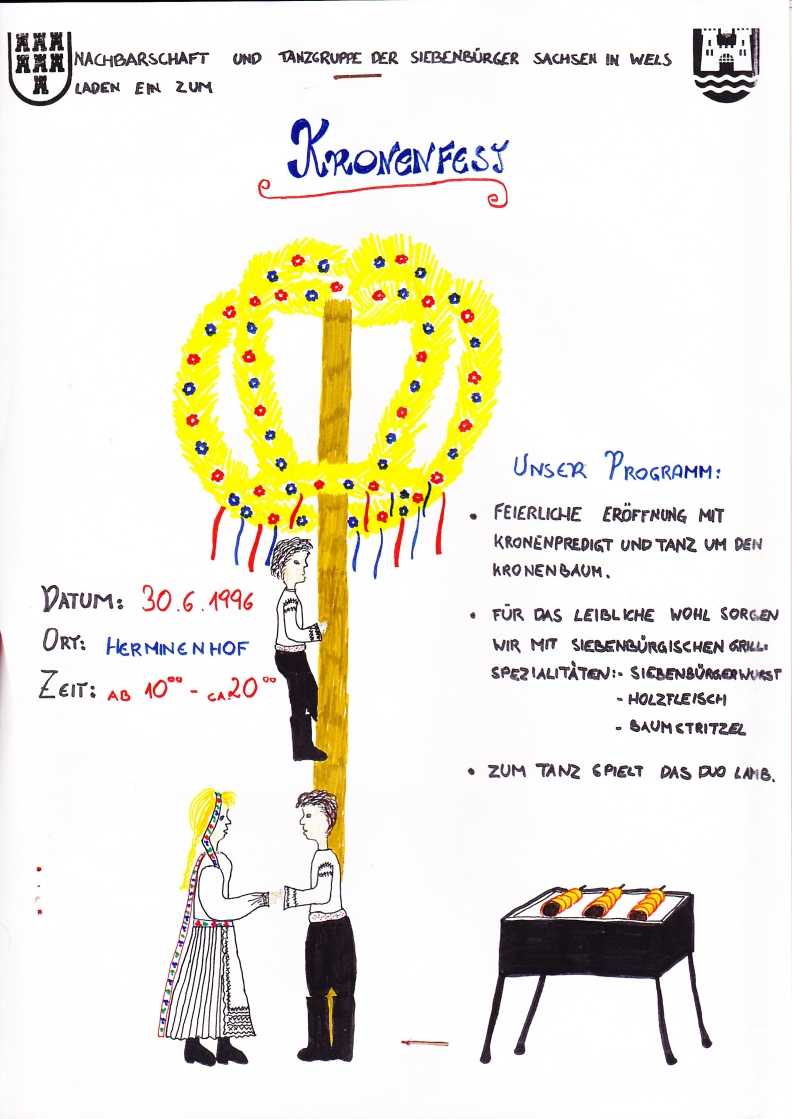 NACHBARSCHAFT UND TANZGRUPPE DER SIEBENBÜRGER SACHSEN IN WELS
LADEN EIN ZUM
KRONENFEST
UNSER PROGRAMM:
• FEIERLICHE ERÖFFNUNG MIT
KRONENPREDIGT UND TANZ UM DEN
KRONENBAUM.
DATUM: 30.6.1996
ORT: HERMINENHOF
ZEIT: AB 10⁰⁰ - CA. 20⁰⁰
• FÜR DAS LEIBLICHE WOHL SORGEN
WIR MIT SIEBENBÜRGISCHEN GRILL-
SPEZIALITÄTEN: - SIEBENBÜRGERWURST
- HOLZFLEISCH
- BAUMSTRITZEL
• ZUM TANZ SPIELT DAS DUO LAMB.